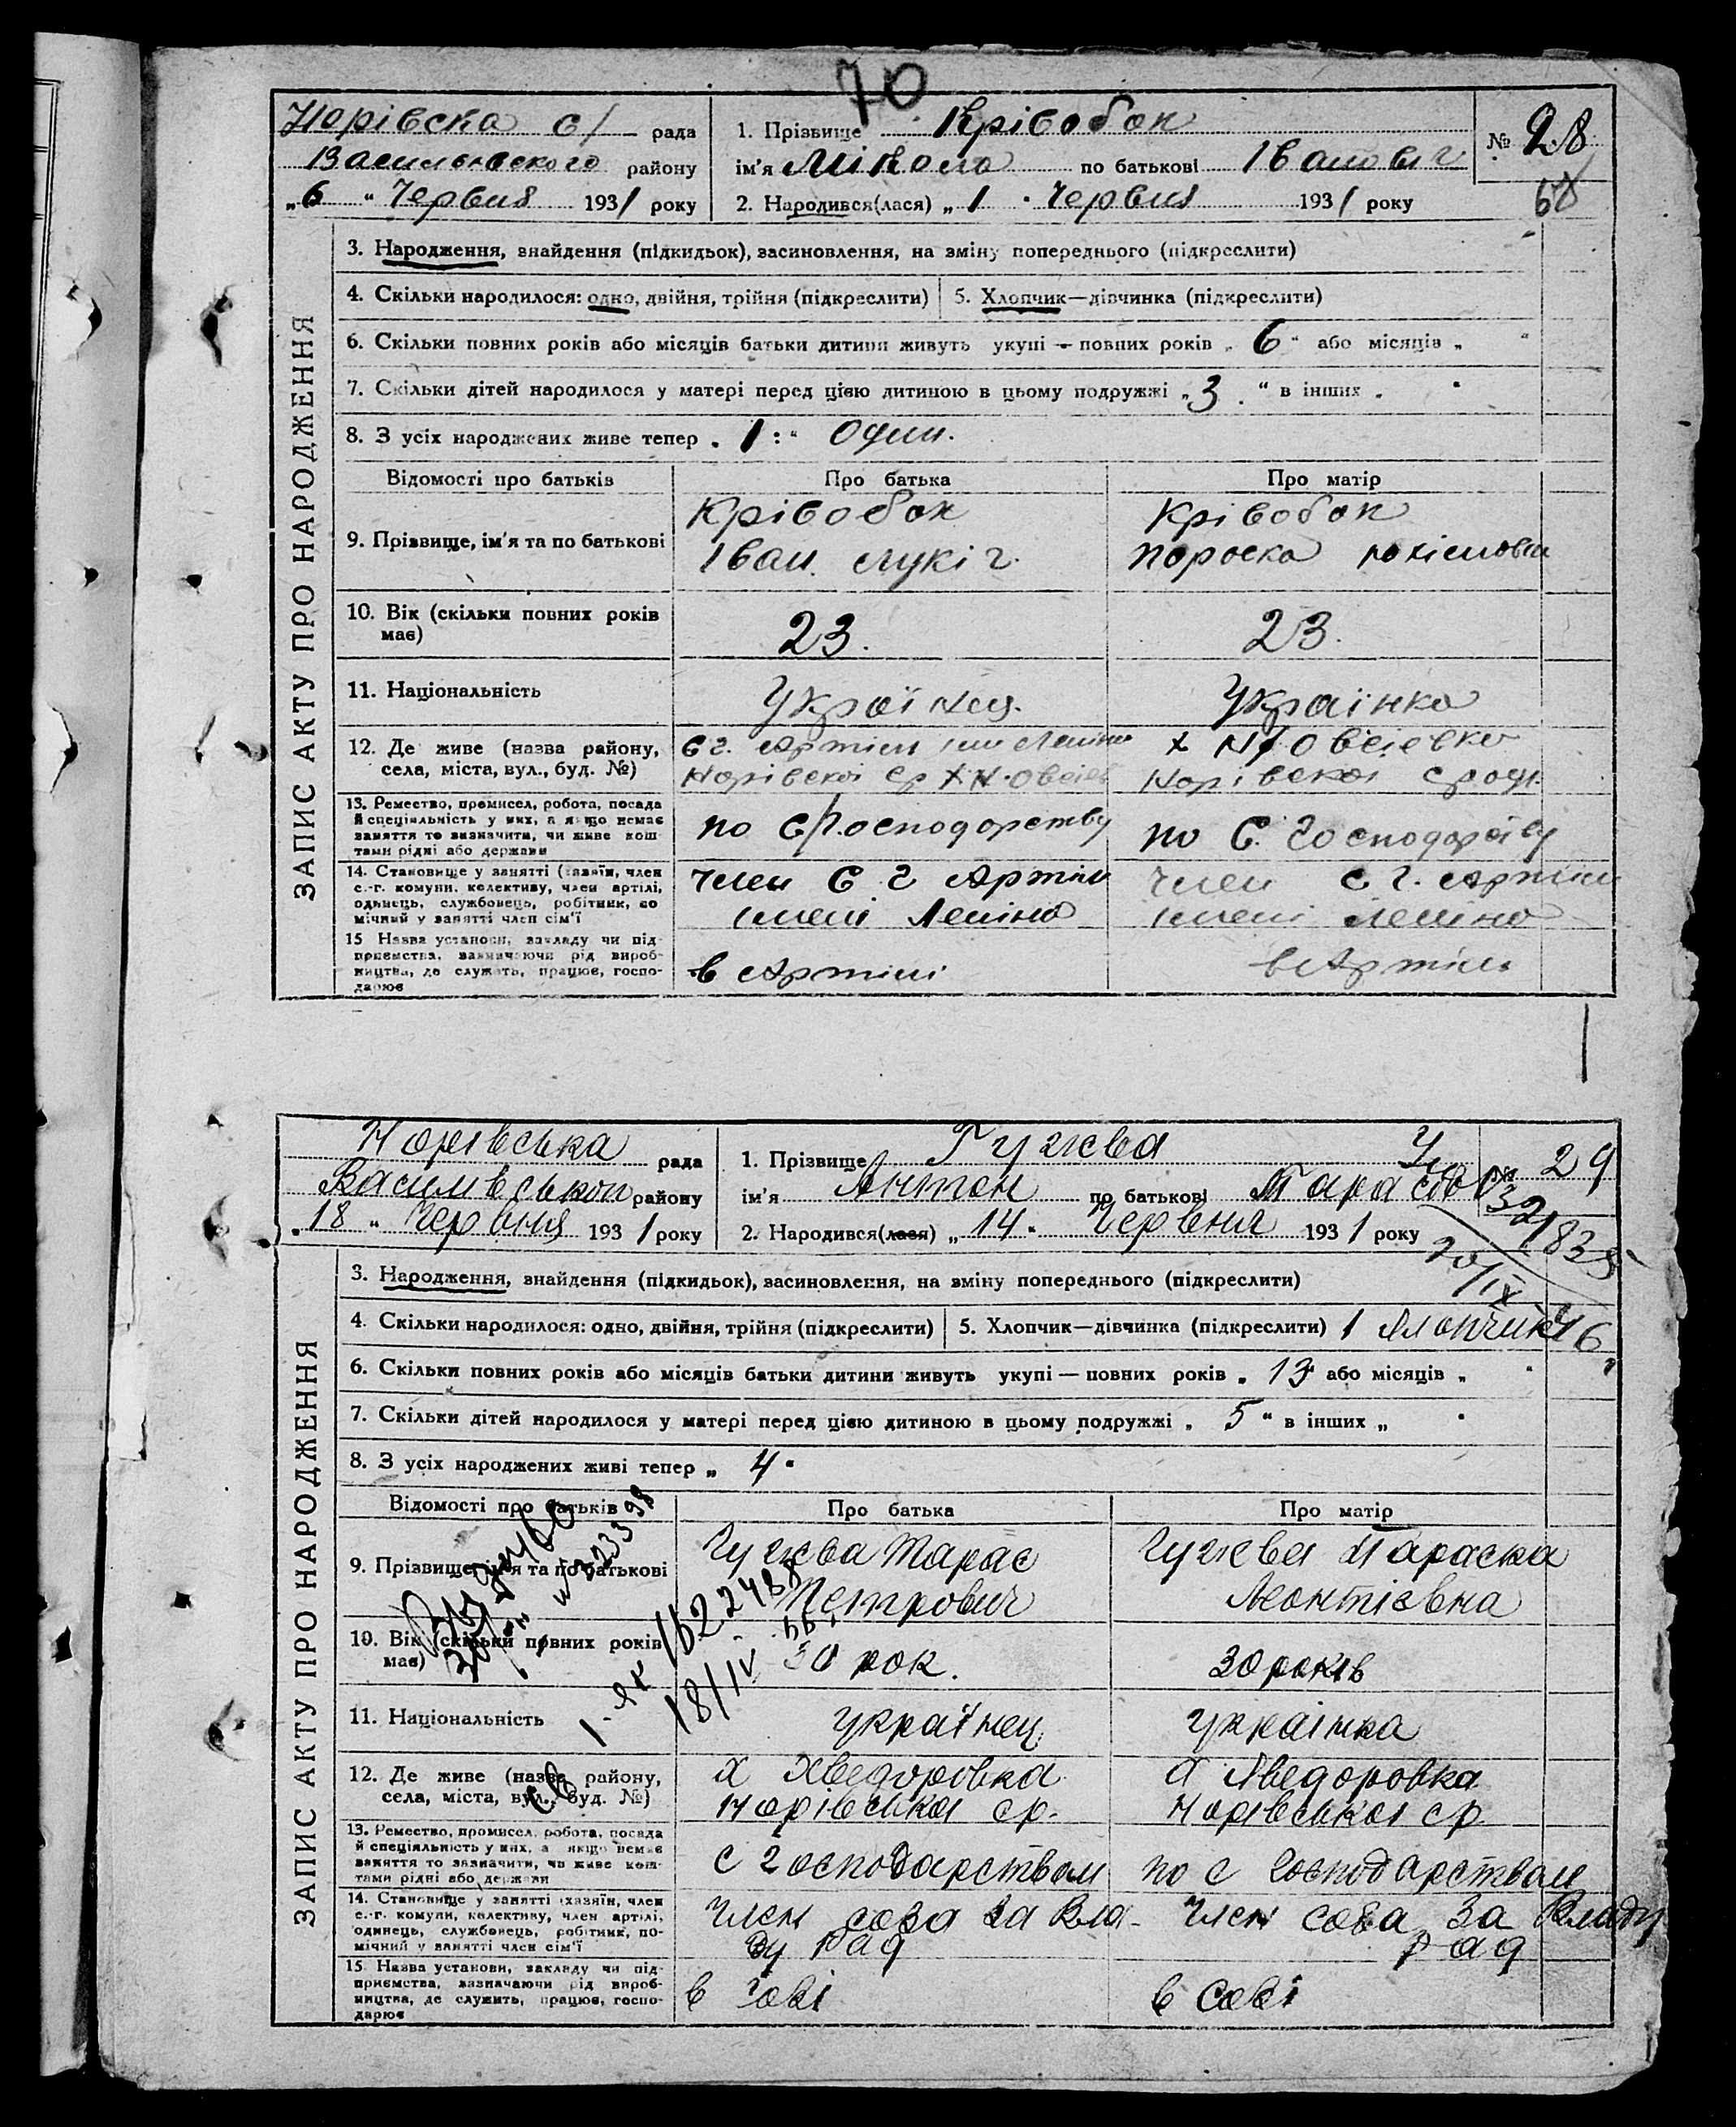 70
Норівска с/ рада
Васильовского району
„6“ Червня 1931 року
1. Прізвище Крівобок
ім'я Мікола по батькові Іванович
2. Народився(лася) „1“ Червня 1931 року
№ 28
68
ЗАПИС АКТУ ПРО НАРОДЖЕННЯ
3. Народження, знайдення (підкидьок), засиновлення, на зміну попереднього (підкреслити)
4. Скільки народилося: одно, двійня, трійня (підкреслити)
5. Хлопчик—дівчинка (підкреслити)
6. Скільки повних років або місяців батьки дитини живуть укупі — повних років „6“ або місяців „ “
7. Скільки дітей народилося у матері перед цією дитиною в цьому подружжі „3“ в інших „
8. З усіх народжених живе тепер „1:“ Один.
Відомості про батьків
Про батька
Про матір
9. Прізвище, ім'я та по батькові
Крівобок
Іван Лукіч.
Крівобок
Пороска
10. Вік (скільки повних років
має)
23.
23.
11. Національність
Україnец.
Українка
12. Де живе (назва району,
села, міста, вул., буд. №)
Сг. Артіли ім Леніна
Норівскоі Ср Х Н.Овсіев
х Н/Овсіевка
Норівскоі сроди
13. Ремество, промисел, робота, посада
й спеціяльність у них, а якщо немає
заняття то зазначити, чи живе кош-
тами рідні або держави
по С/Господорству
по С. Господорству
14. Становище у занятті (хазяїн, член
с.-г. комуни, колективу, член артілі,
одинець, службовець, робітник, по-
мічний у занятті член сім'ї
член С г Артіли
імені Леніна
член С г. Артіли
імені Леніна
15 Назва установи, закладу чи під-
приємства, зазначаючи рід вироб-
ництва, де служить, працює, госпо-
дарює
в Артілі
в Артіли
Норівська рада
Василівськоі району
„18“ Червня 1931 року
1. Прізвище Гужва
ім'я Антон по батькові Тарасов
2. Народився(лася) „14“ Червня 1931 року
№ 29
20/ІХ 46
ЗАПИС АКТУ ПРО НАРОДЖЕННЯ
3. Народження, знайдення (підкидьок), засиновлення, на зміну попереднього (підкреслити)
4. Скільки народилося: одно, двійня, трійня (підкреслити)
5. Хлопчик—дівчинка (підкреслити) 1 Хлопчик
6. Скільки повних років або місяців батьки дитини живуть укупі — повних років „13“ або місяців „ “
7. Скільки дітей народилося у матері перед цією дитиною в цьому подружжі „5“ в інших „
8. З усіх народжених живі тепер „4“
Відомості про батьків
Про батька
Про матір
9. Прізвище, ім'я та по батькові
Гужва Тарас
Петрович
Гужва Параска
Леонтієвна
10. Вік (скільки повних років
має)
30 рок.
30 років
11. Національність
українец
українка
12. Де живе (назва району,
села, міста, вул., буд. №)
х Хведоровка
Норівськоі ср.
х Хведоровка
Норівськоі ср
13. Ремество, промисел, робота, посада
й спеціяльність у них, а якщо немає
заняття то зазначити, чи живе кош-
тами рідні або держави
с господарствам
по с господарствам
14. Становище у занятті (хазяїн, член
с.-г. комуни, колективу, член артілі,
одинець, службовець, робітник, по-
мічний у занятті член сім'ї
член соза за Вла-
ду Рад
член соза За Владу
Рад
15 Назва установи, закладу чи під-
приємства, зазначаючи рід вироб-
ництва, де служить, працює, госпо-
дарює
в созі
в созі